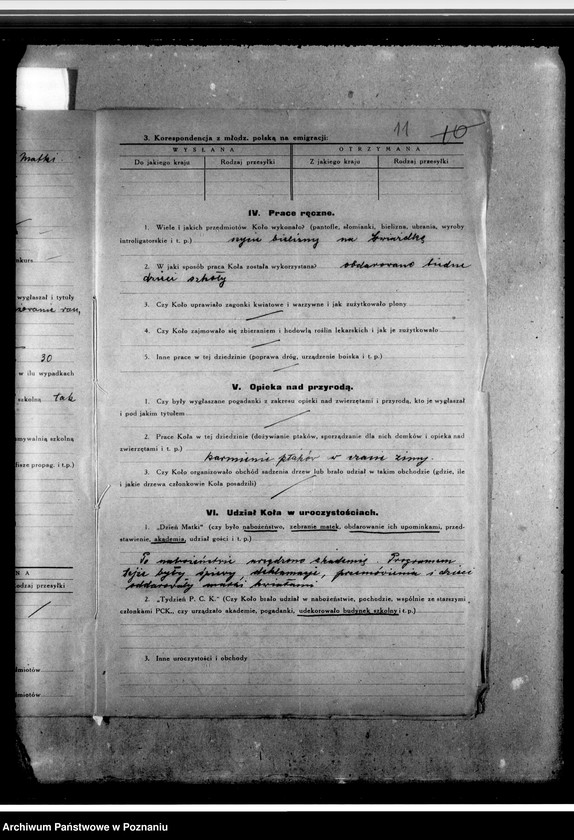 11 10
3. Korespondencja z młodz. polską na emigracji:
WYSŁANA OTRZYMANA
Do jakiego kraju Rodzaj przesyłki Z jakiego kraju Rodzaj przesyłki
IV. Prace ręczne.
1. Wiele i jakich przedmiotów Koło wykonało? (pantofle, słomianki, bielizna, ubrania, wyroby
introligatorskie i t. p.) szycie bielizny na Gwiazdkę
2. W jaki sposób praca Koła została wykorzystana? obdarowano biedne
dzieci szkoły
3. Czy Koło uprawiało zagonki kwiatowe i warzywne i jak zużytkowało plony
4. Czy Koło zajmowało się zbieraniem i hodowlą roślin lekarskich i jak je zużytkowało
5. Inne prace w tej dziedzinie (poprawa dróg, urządzenie boiska i t. p.)
V. Opieka nad przyrodą.
1. Czy były wygłaszane pogadanki z zakresu opieki nad zwierzętami i przyrodą, kto je wygłaszał
i pod jakim tytułem
2. Praca Koła w tej dziedzinie (dożywianie ptaków, sporządzanie dla nich domków i opieka nad
zwierzętami i t. p.) karmienie ptaków w czasie zimy.
3. Czy Koło organizowało obchód sadzenia drzew lub brało udział w takim obchodzie (gdzie, ile
i jakie drzewa członkowie Koła posadzili)
VI. Udział Koła w uroczystościach.
1. „Dzień Matki" (czy było nabożeństwo, zebranie matek, obdarowanie ich upominkami, przed-
stawienie, akademie, udział gości i t. p.)
Po nabożeństwie urządzono akademię. Programem
tejże były śpiewy deklamacje, przemówienia i dzieci
obdarowały matki kwiatami
2. „Tydzień P. C. K." (Czy Koło brało udział w nabożeństwie, pochodzie, wspólnie ze starszymi
członkami PCK., czy urządzało akademie, pogadanki, udekorowało budynek szkolny i t. p.)
3. Inne uroczystości i obchody
Matki.
nkurs
wygłaszał i tytuły
30
w ilu wypadkach
szkolną tak
mywalnią szkolną
fisze propag. i t.p.)
NA
odzaj przesyłki
dmiotów
dmiotów
Archiwum Państwowe w Poznaniu